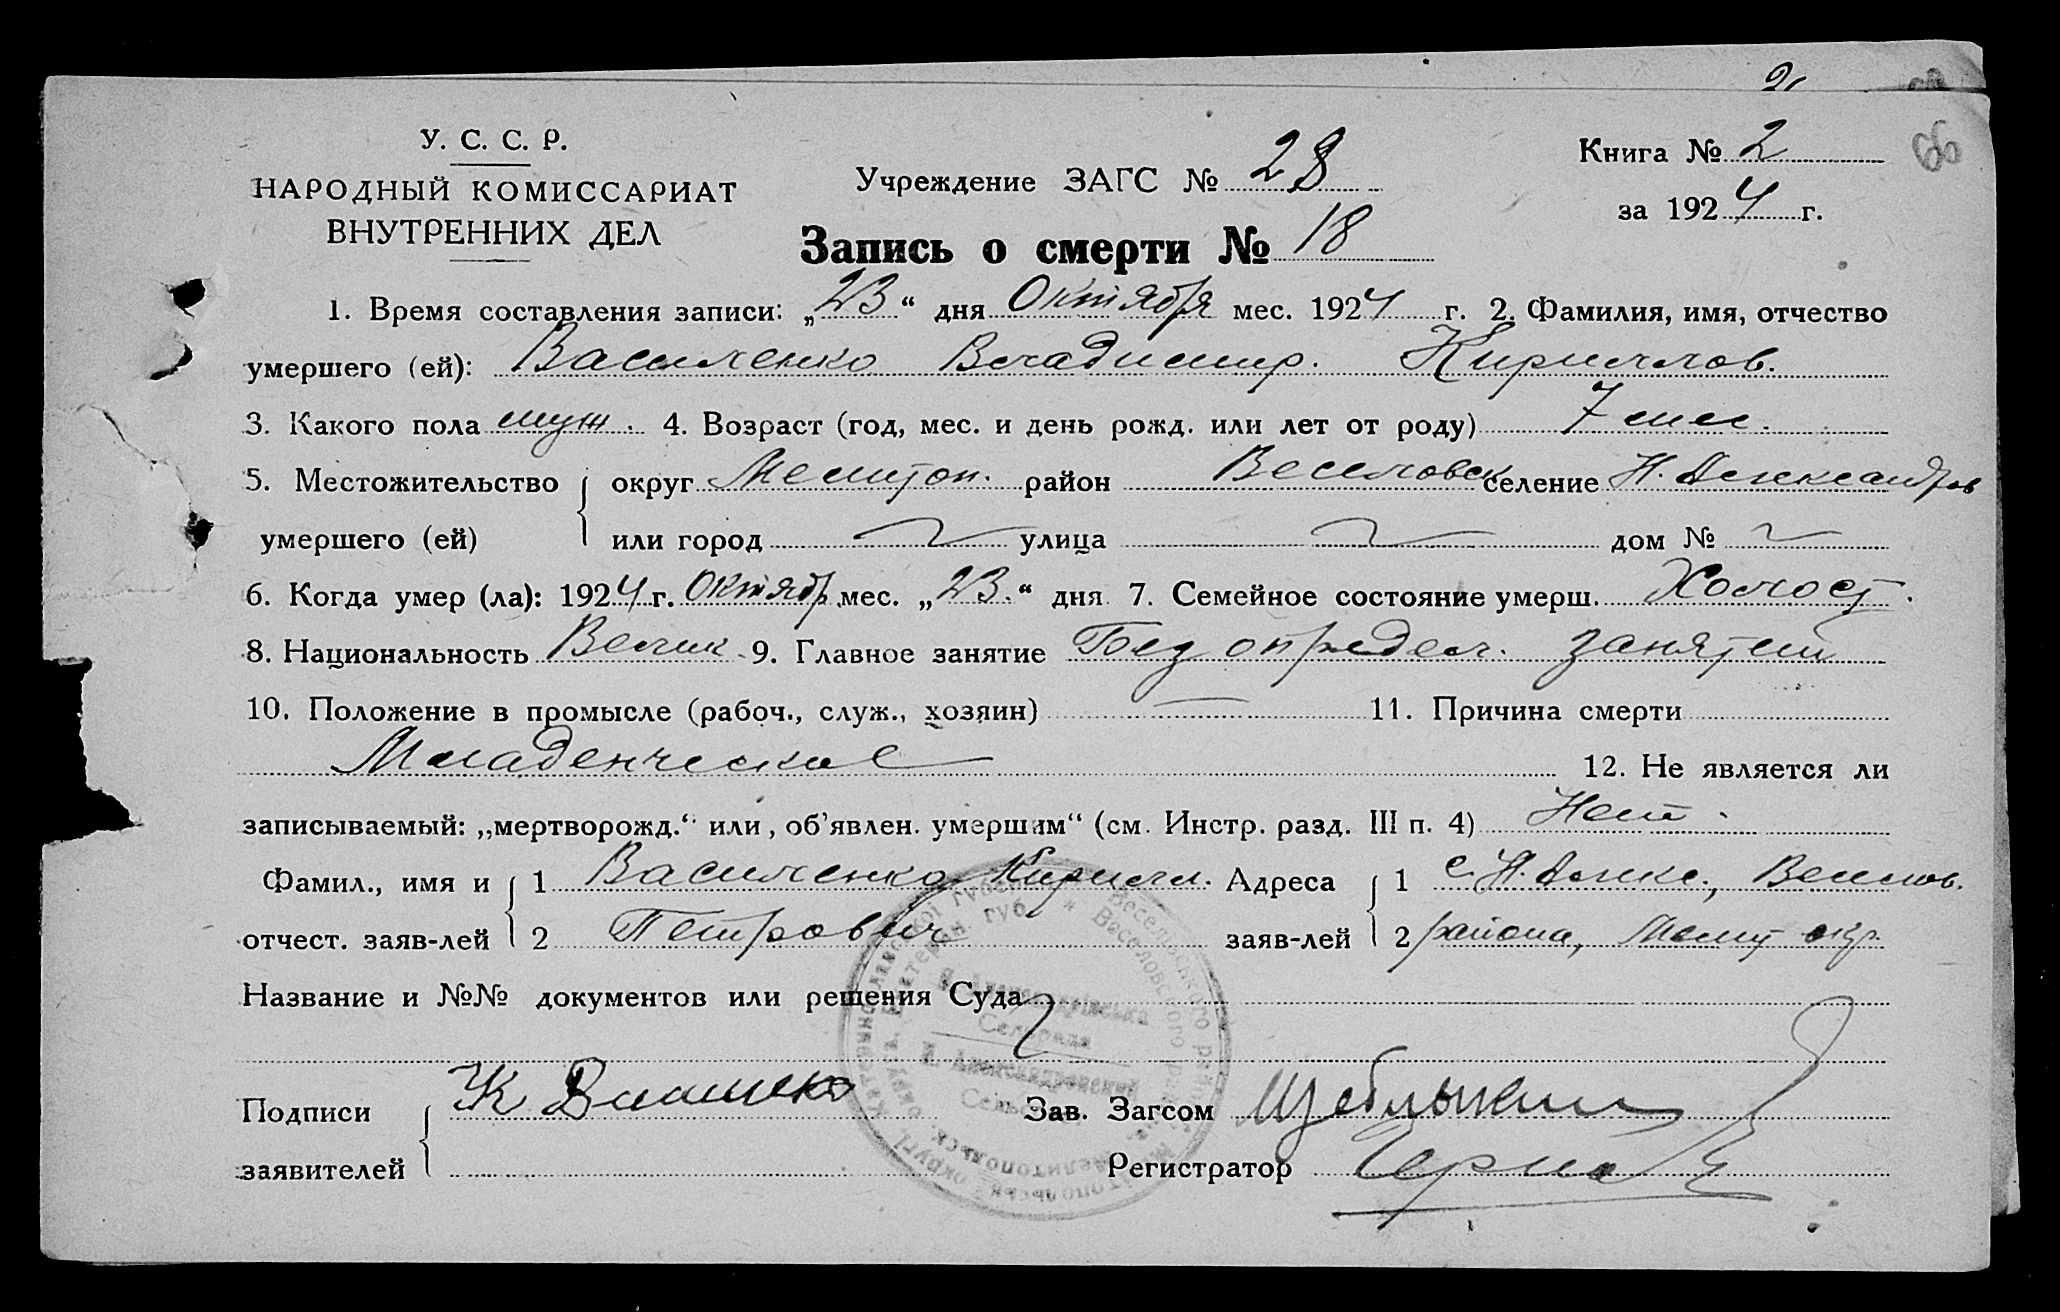 У. С. С. Р.
НАРОДНЫЙ КОМИССАРИАТ
ВНУТРЕННИХ ДЕЛ
Учреждение ЗАГС № 28
Книга № 2
66
за 1924 г.
Запись о смерти № 18
1. Время составления записи: „23“ дня Октября мес. 1924 г. 2. Фамилия, имя, отчество
умершего (ей): Василенко Владимир. Кириллов.
3. Какого пола муж. 4. Возраст (год, мес. и день рожд. или лет от роду) 7 мес.
5. Местожительство округ Мелитоп. район Веселовск селение Н. Александров
умершего (ей) или город улица дом №
6. Когда умер (ла): 1924 г. Октябр. мес. „23.“ дня 7. Семейное состояние умерш. Холост.
8. Национальность Велик 9. Главное занятие Без определ. занятий
10. Положение в промысле (рабоч., служ., хозяин) — 11. Причина смерти
Младенческая 12. Не является ли
записываемый: „мертворожд.“ или, об'явлен. умершим“ (см. Инстр. разд. III п. 4) Нет.
Фамил., имя и 1 Василенко Кирилл. Адреса 1 с. Н. Алекс., Веселов.
отчест. заяв-лей 2 Петрович заяв-лей 2 района, Мелит окр.
Название и №№ документов или решения Суда
Подписи К Василенко Зав. Загсом Щеблыкин
заявителей Регистратор